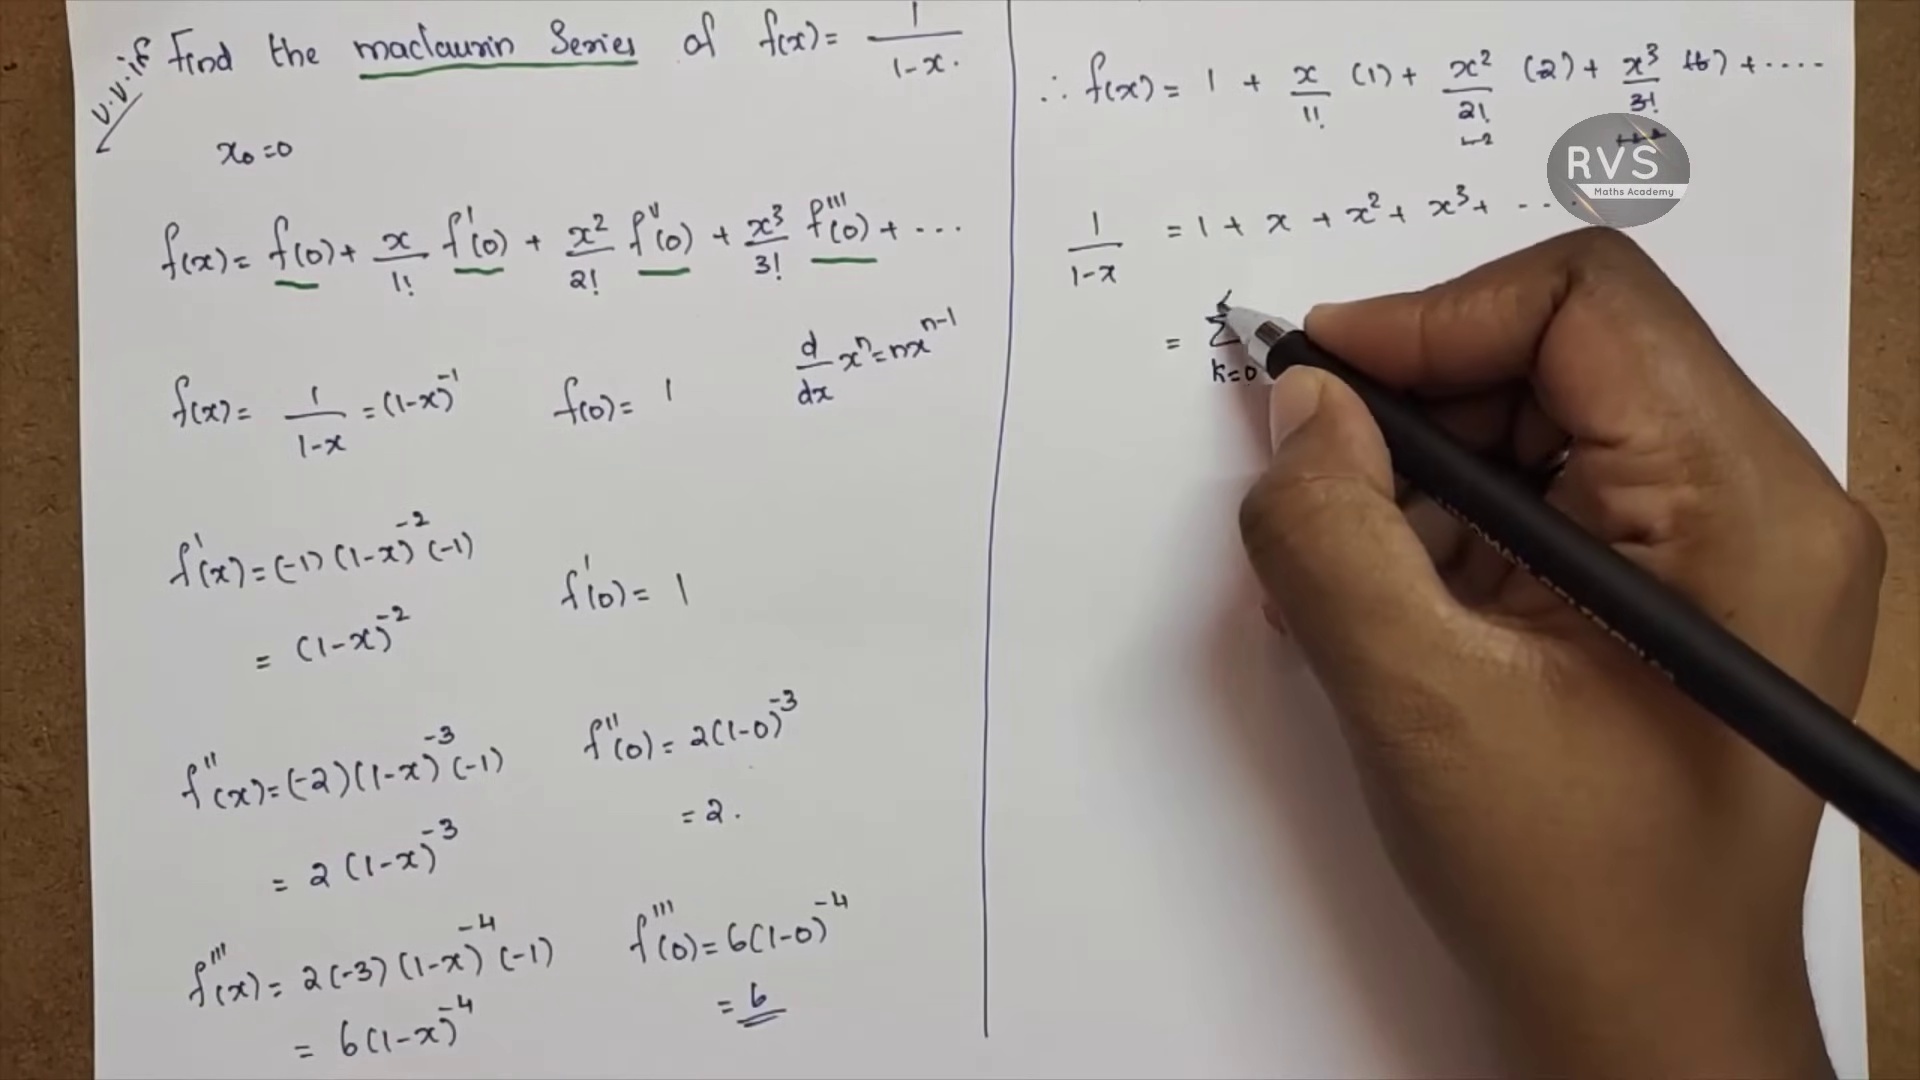 v.v.if Find the maclaurin Series of f(x) = 1/(1-x).
x₀=0
f(x) = f(0) + x/1! f'(0) + x²/2! f''(0) + x³/3! f'''(0) + ...
d/dx xⁿ = nxⁿ⁻¹
f(x) = 1/(1-x) = (1-x)⁻¹ f(0) = 1
f'(x) = (-1)(1-x)⁻²(-1) f'(0) = 1
= (1-x)⁻²
f''(x) = (-2)(1-x)⁻³(-1) f''(0) = 2(1-0)⁻³
= 2(1-x)⁻³ = 2.
f'''(x) = 2(-3)(1-x)⁻⁴(-1) f'''(0) = 6(1-0)⁻⁴
= 6(1-x)⁻⁴ = 6
∴ f(x) = 1 + x/1! (1) + x²/2! (2) + x³/3! (6) + ....
RVS
Maths Academy
1/(1-x) = 1 + x + x² + x³ + ...
= Σ k=0